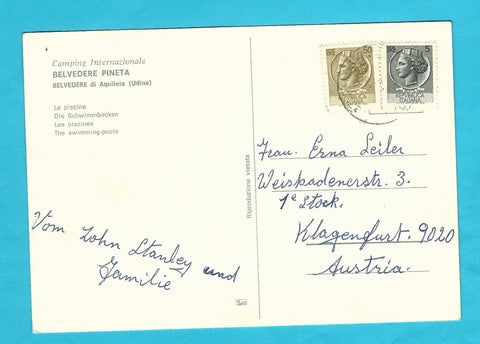 Camping Internazionale
BELVEDERE PINETA
BELVEDERE di Aquileia (Udine)
Le piscine
Die Schwimmbecken
Les piscines
The swimming-pools
Vom John Stanley und
Familie
Riproduzione vietata
50
REPUBBLICA
ITALIANA
5
REPUBBLICA
ITALIANA
Frau. Erna Leiler
Weiskadenerstr. 3.
1e Stock.
Klagenfurt. 9020
Austria.